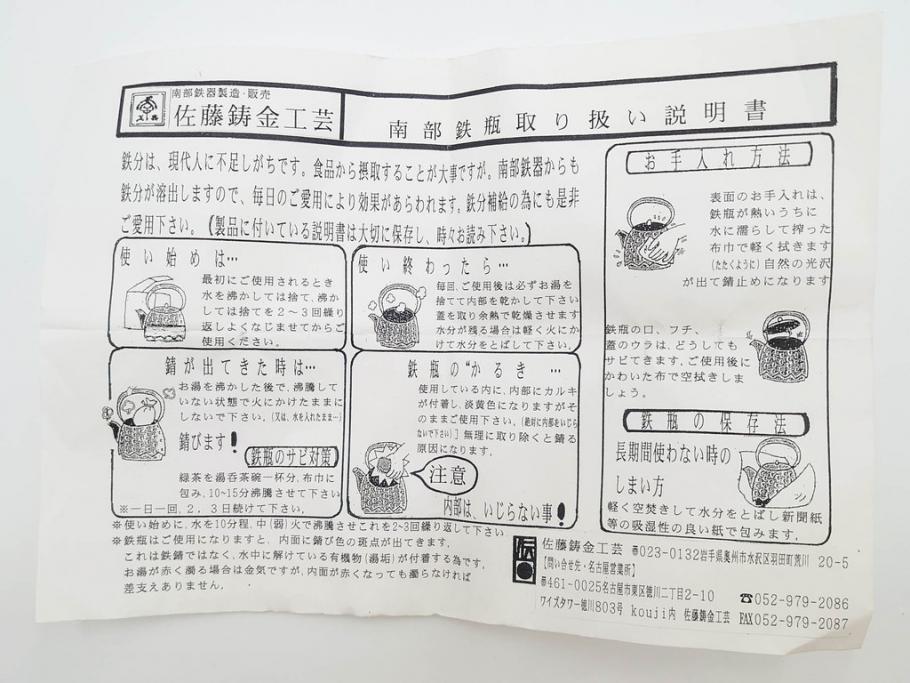 南部鉄器製造・販売
佐藤鋳金工芸
南部鉄瓶取り扱い説明書
鉄分は、現代人に不足しがちです。食品から摂取することが大事ですが。南部鉄器からも
鉄分が溶出しますので、毎日のご愛用により効果があらわれます。鉄分補給の為にも是非
ご愛用下さい。(製品に付いている説明書は大切に保存し、時々お読み下さい。)
使い始めは…
最初にご使用されるとき
水を沸かしては捨て、沸か
しては捨てを2〜3回繰り
返しよくなじませてからご
使用ください。
使い終わったら…
毎回、ご使用後は必ずお湯を
捨てて内部を乾かして下さい
蓋を取り余熱で乾燥させます
水分が残る場合は軽く火にか
けて水分をとばして下さい。
錆が出てきた時は…
お湯を沸かした後で、沸騰して
いない状態で火にかけたままに
しないで下さい。(又は、水を入れたまま…)
錆びます!
鉄瓶のサビ対策
緑茶を湯呑茶碗一杯分、布巾に
包み、10~15分沸騰させて下さい
※一日一回、2，3日続けて下さい。
鉄瓶の“かるき …
使用している内に、内部にカルキ
が付着し、淡黄色になりますがそ
のままご使用下さい。[絶対に内部をいじら
ないで下さい)]無理に取り除くと錆る
原因になります。
注意
内部は、いじらない事!
お手入れ方法
表面のお手入れは、
鉄瓶が熱いうちに
水に濡らして搾った
布巾で軽く拭きます
(たたくように)自然の光沢
が出て錆止めになります
鉄瓶の口、フチ、
蓋のウラは、どうしても
サビてきます。ご使用後に
かわいた布で空拭きしま
しょう。
鉄瓶の保存法
長期間使わない時の
しまい方
軽く空焚きして水分をとばし新聞紙
等の吸湿性の良い紙で包みます。
※使い始めに、水を10分程、中(弱)火で沸騰させこれを2~3回繰り返して下さい
※鉄瓶はご使用になりますと、内面に錆び色の斑点が出てきます。
これは鉄錆ではなく、水中に解けている有機物(湯垢)が付着する為です。
お湯が赤く濁る場合は金気ですが、内面が赤くなっても濁らなければ
差支えありません。
伝
佐藤鋳金工芸 〒023-0132岩手県奥州市水沢区羽田町荒川 20-5
[問い合せ先・名古屋営業所]
〒461-0025名古屋市東区徳川二丁目2-10 ☎052-979-2086
ワイズタワー徳川803号 kouji内 佐藤鋳金工芸 FAX052-979-2087